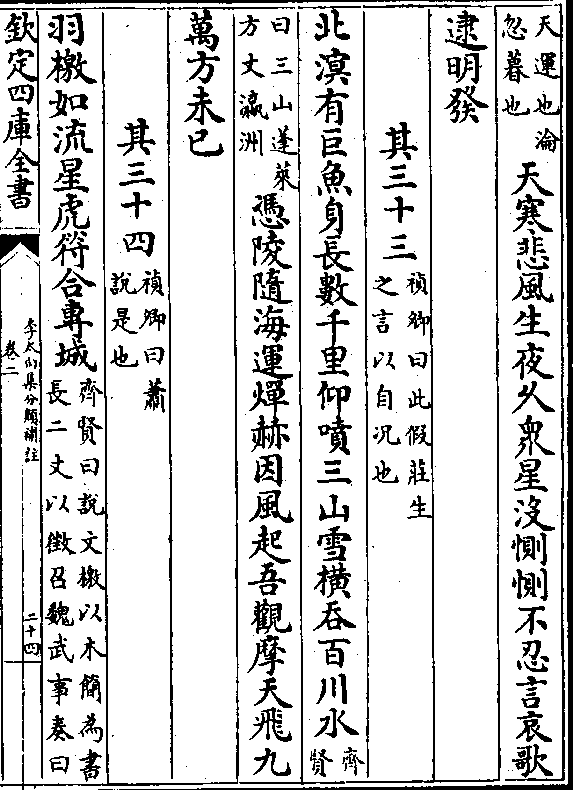 天運也淪
忽暮也
天寒悲風生夜久衆星没惻惻不忍言哀歌
逮明發
其三十三
禎卿曰此假莊生
之言以自况也
北溟有巨魚身長數千里仰噴三山雪横吞百川水
齊
賢
曰三山蓬萊
方丈瀛洲
憑陵隨海運燀赫因風起吾觀摩天飛九
萬方未已
其三十四
禎卿曰蕭
說是也
羽檄如流星虎符合專城
齊賢曰說文檄以木簡為書
長二丈以徵召魏武事奏曰
欽定四庫全書
李太白集分類補註
卷二
二十四